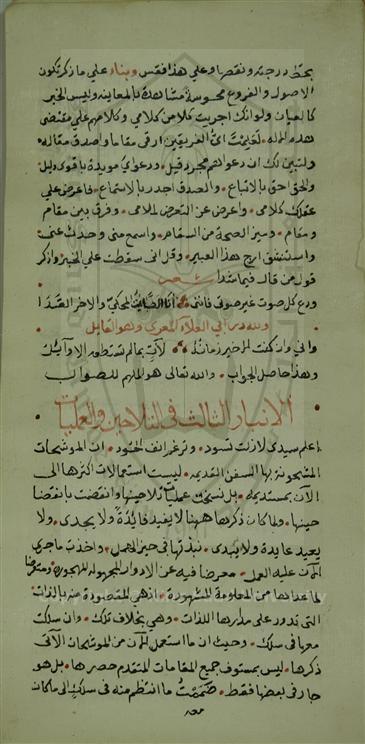 بحط درجته ونقصها وعلي هذا فقس وبناء علي ما ذكر تكون
الاصول والفروع محسوسة مشاهدة بالمعاينه وليس الخبر
كالعيان ولو انك اجريت كلا من كلامي وكلامهم علي مقتضى
هذه لعلمت اي الفريقين ارقى مقاما واصدق مقاله
ولتبين لك ان دعواهم مجرد قيل ودعوي مويدة باقوى دليل
والحق احق بالاتباع والصدق اجدر بالاستماع فاعرض علي
عقلك كلامي واعرض عن التعرض لملامي وفرق بين مقام
ومقام وميز الصحة من السقام واسمع مني وحدث عني
واستنشق ارج هذا العبير وقل اني سقطت علي الخبير واذكر
قول من قال فيما شدا شعر
ودع كل صوت غير صوتي فانني انا الصايح المحكي والاخر الصدا
ولله در ابي العلاء المعري وهو القايل
واني وان كنت الاخير زمانه لآت بما لم تستطعه الاوايل
وهذا حاصل الجواب والله تعالى هو الملهم للصواب
الانبار الثالث في التلاحين والعمليات
اعلم سيدي لا زلت تسود وترغم انف الحسود ان الموشحات
المشحونة بها السفن القديمه ليست استعمالات اكثرها الى
الآن بمستديمه بل نسخت عمليات تلاحينها وانقضت بانقضا
حينها ولما كان ذكرها ههنا لا يفيد فايدة ولا يجدى ولا
يعيد عايدة ولا يبدى نبذتها في حيز الهمل واخذت ما جرى
الآن عليه العمل معرضا فيه عن الادوار المجهوله المهجورة ومتعرضا
لما عداها من المعلومة المشهورة اذ هي المقصودة عنه بالذات
التي تدور على مدارها اللذات وهي بخلاف تلك وان سلكت
معها في سلك وحيث ان ما استعمل الآن من الموشحات الآتي
ذكرها ليس بمستوف جميع المقامات المتقدم حصرها بل هو
جار في بعضها فقط ضممت ما انتظم منه في سلك الى ما كان